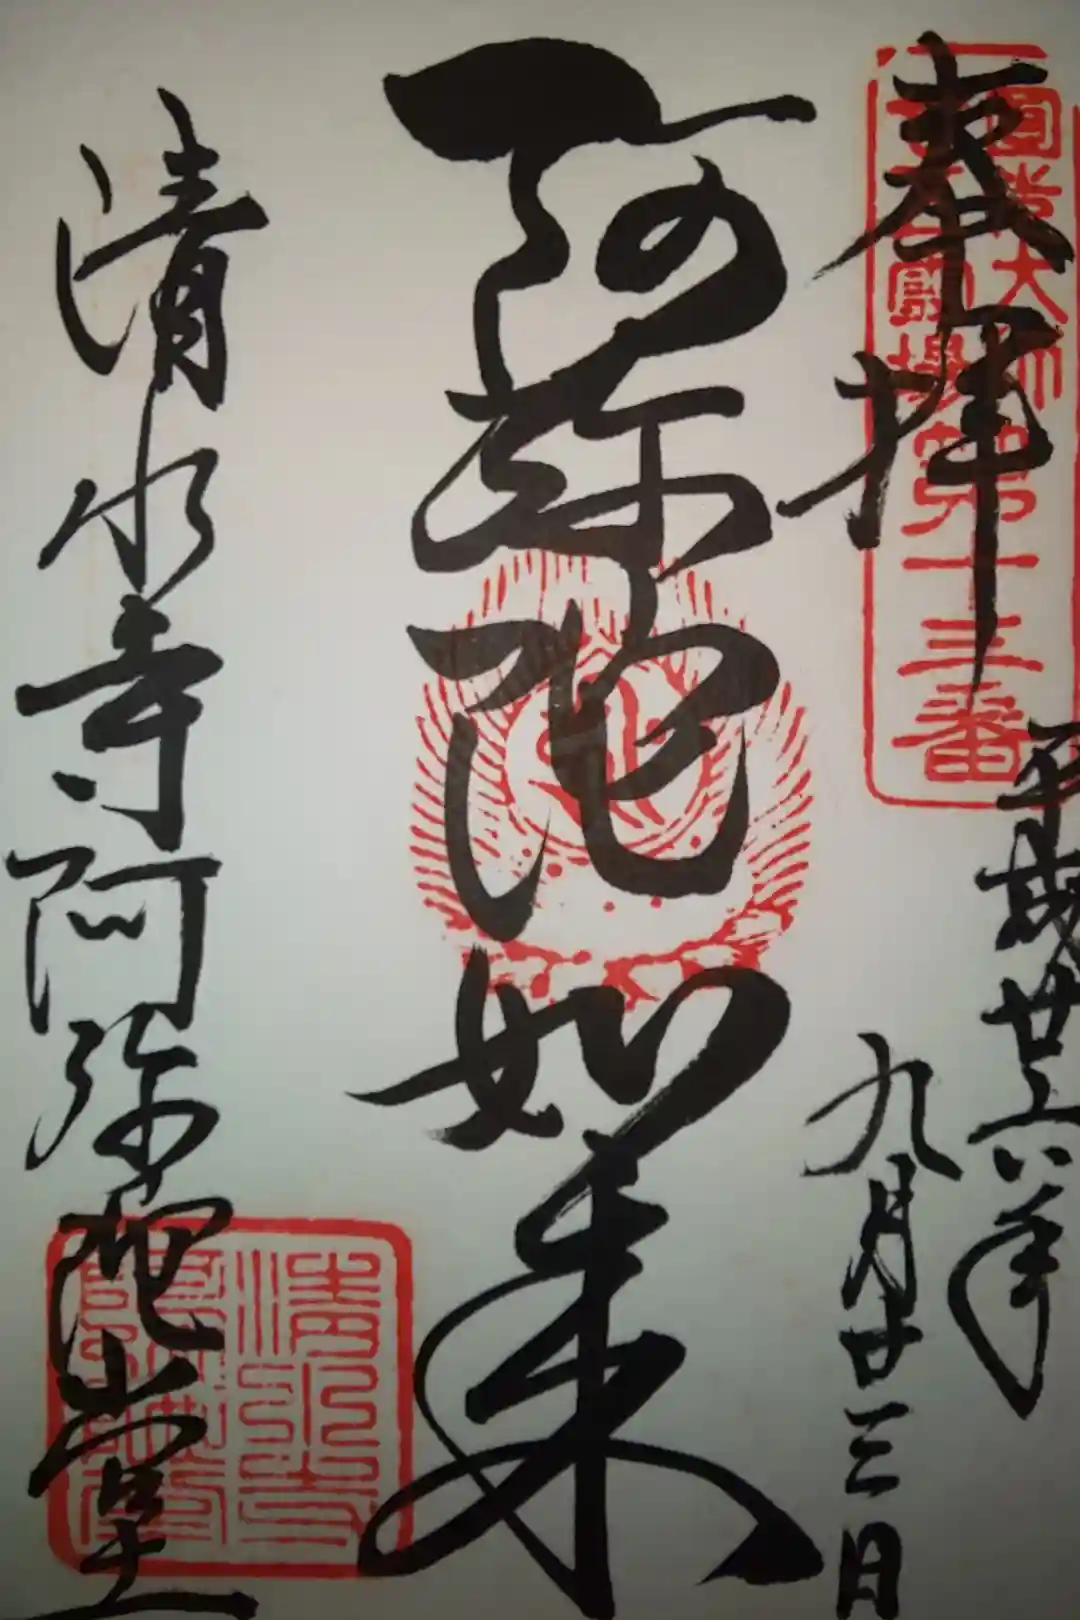 奉拝
圓光大師
場第十三番
平成廿六年
九月廿三日
阿弥陀如来
清水寺阿弥陀堂
清水寺
阿弥陀堂